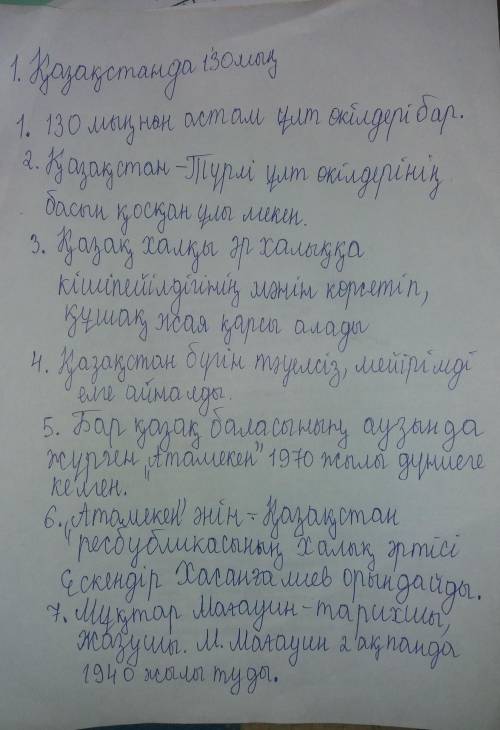 1. Қазақстанда 130мың
1. 130 мыңнан астам ұлт өкілдері бар.
2. Қазақстан - Түрлі ұлт өкілдерінің
басын қосқан ұлы мекен.
3. Қазақ халқы әр халыққа
кішіпейілдігінің мәнін көрсетіп,
құшақ жая қарсы алады
4. Қазақстан бүгін тәуелсіз, мейірімді
елге айналды.
5. Бар қазақ баласының аузында
жүрген „Атамекен" 1970 жылы дүниеге
келген.
6. „Атамекен" әнін - Қазақстан
ресбубликасының халық әртісі
Ескендір Хасанғалиев орындайды.
7. Мұқтар Мағауин - тарихшы,
жазушы. М. Мағауин 2 ақпанда
1940 жылы туды.